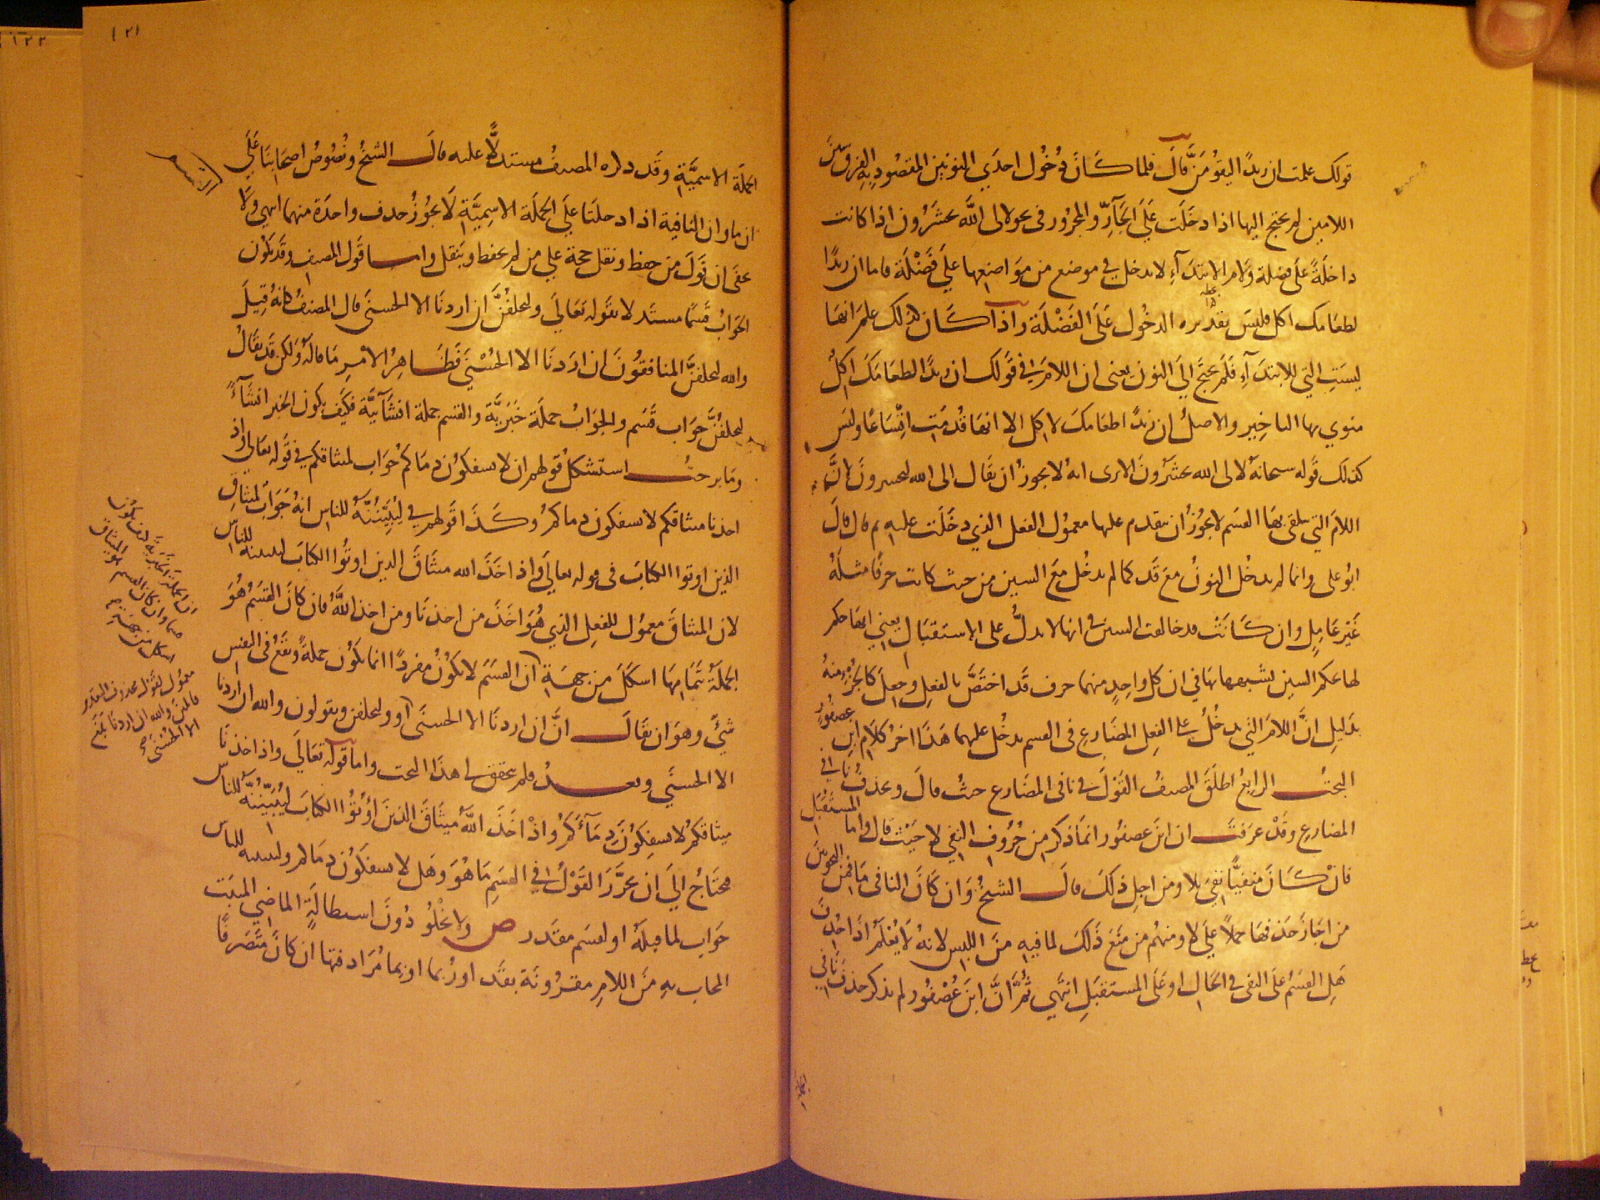 قولك علمت ان زيدًا ليقومَنَّ قالَ فلما كَانَ دُخُول احدَي النونَين المقصُود بِهِ الفرق بين
اللامين لم يحتج اليها اذا دخَلَت عَلَي الجَارِّ والمجرُور في نحو لالى اللَّه تحشَرُون اذا كانت
داخلَةً عَلَى فضلة ولام الابتدَآءِ لا تدخل في موضع من موَاضعِها علَي فَضْلَة فاما ان زيدًا
لطعَامك اكل فليسَ بتقديره الدخُول عَلَى الفَضْلَة واذا كَان كذلك علمَ انهَا
ليسَت التي للابتدَآءِ فَلَم يحتَج الَي النون يعني ان اللامَ في قَولك ان زيدًا لطعَامَكَ اكلٌ
منوي بها التاخِير والاصلُ ان زيدًا طعَامكَ لاكل الا انهَا قُدمَت اتِّسَاعًا وليسَ
كذلكَ قَوله سبحانهُ لالى الله تحشَرُونَ الا ترى انهُ لا يجوزُ ان يقَال الى الله لتحشرونَ لانَّ
اللامَ التي يتلقى بهَا القَسَم لا يجُوزُ ان يتقدم عليها معمُول الفعل الذي دخَلَت عليهِ ثم قال قالَ
ابُو على وانما لم يدخُل النونُ معَ قَد كما لم يدخُل معَ السين من حيث كانت حرفًا مثلَهُ
غَيرَ عَامِلٍ وان كَانَتْ قد خالفت السينَ في انها لا تدلُّ على الاستقبَال يعني انهَا حكم
لها بحكم السين لشبهها بهَا في ان كل واحِدٍ منهما حرف قَد اختَصَّ بالفعلِ وجعلَ كالجُزْءِ منهُ
بدَليلِ انَّ اللامَ التي تدخُلُ على الفِعل المضَارع في القسم تدخُل عليهما هَذا اخر كلَامِ ابن عصفُور
البحثُ الرابعُ اطلَقَ المصنفُ القَولَ في نافي المضَارع حيثُ قالَ وحذف نافي
المضارع وقَدْ عرَفتَ ان ابنَ عصفُور انمَا ذكر من حُرُوف النفي لا حَيث قال واما المستَقبَل
فانْ كَانَ منفيًّا نفيَ بلا ومن اجلِ ذلكَ قالَ الشيخُ وَان كَانَ النافي مَا فمن النحويينَ
من اجَازَ حذفهَا حملاً علَي لا ومنهُم من منَعَ ذَلكَ لما فيهِ منَ اللبسِ لانهُ لا يُعْلَمُ اذا حُذفَ
هَلِ القسَمُ علَى النفي في الحَالِ او عَلَى المستقبَلِ انتَهي ثُمَّ انَّ ابنَ عُصْفُور لم يذكر حذفَ نافي
١٢١
الجملَة الاسميَّة وقَد ذكره المصنفُ مستدلًّا عليه قالَ الشيخُ ونُصُوصُ اصحَابنَا عَلَي
ان ما وان النافية اذا دخلتَا علَي الجملَة الاسميَّة لَا يجُوزُ حذف واحدَة منهما انتهي ولا
يخفَى ان قَولَ من حفظ ونقل حجة علي من لم يحفظ وينقل واما قَول المصنف وقَد يكُون
الجوَابُ قَسَمًا مستَدلا بقَوله تعَالَي وليحلفُنَّ ان اردنَا الا الحسنَي قال المصنفُ كانهُ قِيلَ
والله ليحلفنَّ المنافقُونَ ان ارَدنَا الا الحُسْنَي فَظَاهِرُ الامْرِ مَا قالَهُ ولكن قَد يقَالُ
ليحلفُنَّ جَوَاب قَسَم والجوَابُ جملَة خَبَريَّة والقسَم جملة انشَآئيَّة فكَيفَ يكون الخبر انشَآءً
ومَا برحتُ استَشكلُ قَولهم ان لا تسفكُونَ دمَاكم جَوَاب لميثاقكم في قَوله تعَالى واذ
اخذنا ميثاقكم لا تسفكون دماكمْ وكَذَا قَولهم في لَيُبَيِّنُنَّهُ للناسِ انهُ جَوَابٌ لميثَاقِ
الذين اوتوا الكتابَ في قوله تعالي وَاذ اخَذَ الله ميثاقَ الذين اوتُوا الكتابَ ليبيننه للناسِ
لان الميثاقَ معمُول للفعلِ الذي هُوَ اخَذَ من اخذنَا ومن اخذ اللَّهُ فان كانَ القسَمُ هُوَ
الجملَةُ بتَمَامِهَا اشكلَ من جهَةِ ان القسَمَ لا يكُونُ مفردًا انما يكُون جملةً وتقعُ في النفس
شيٌ وهوَ ان يقَالَ انَّ ان اردنَا الا الحسنَي او وليحلفن ويقولون والله ان اردنا
الا الحسنَي وبعدُ فلم يتحقق لي هذا البحث واما قولُه تعَالَي واذ اخذنَا
ميثاقكمُ لا تسفِكُونَ دِمَآءَكُمْ واذْ اخَذَ اللَّهُ ميثَاقَ الذينَ اُوتُوا الكتابَ لَيُبَيِّنُنَّهُ للناسِ
فمحتَاجٌ الَي ان يحرَّرَ القَوْلُ في القسَمِ مَا هُوَ وهَل لا تسفكُونَ دمَاكم وليبيننه للناس
جَوَاب لما قبلَهُ او لقسَم مقَدر ص ولا يخْلُو دُونَ استطالَةٍ الماضي المثبَت
المجَاب بهِ منَ اللامِ مقرُونَة بقَد او رُبما او بِمَا مُرَادفتها ان كَانَ متَصَرفًا